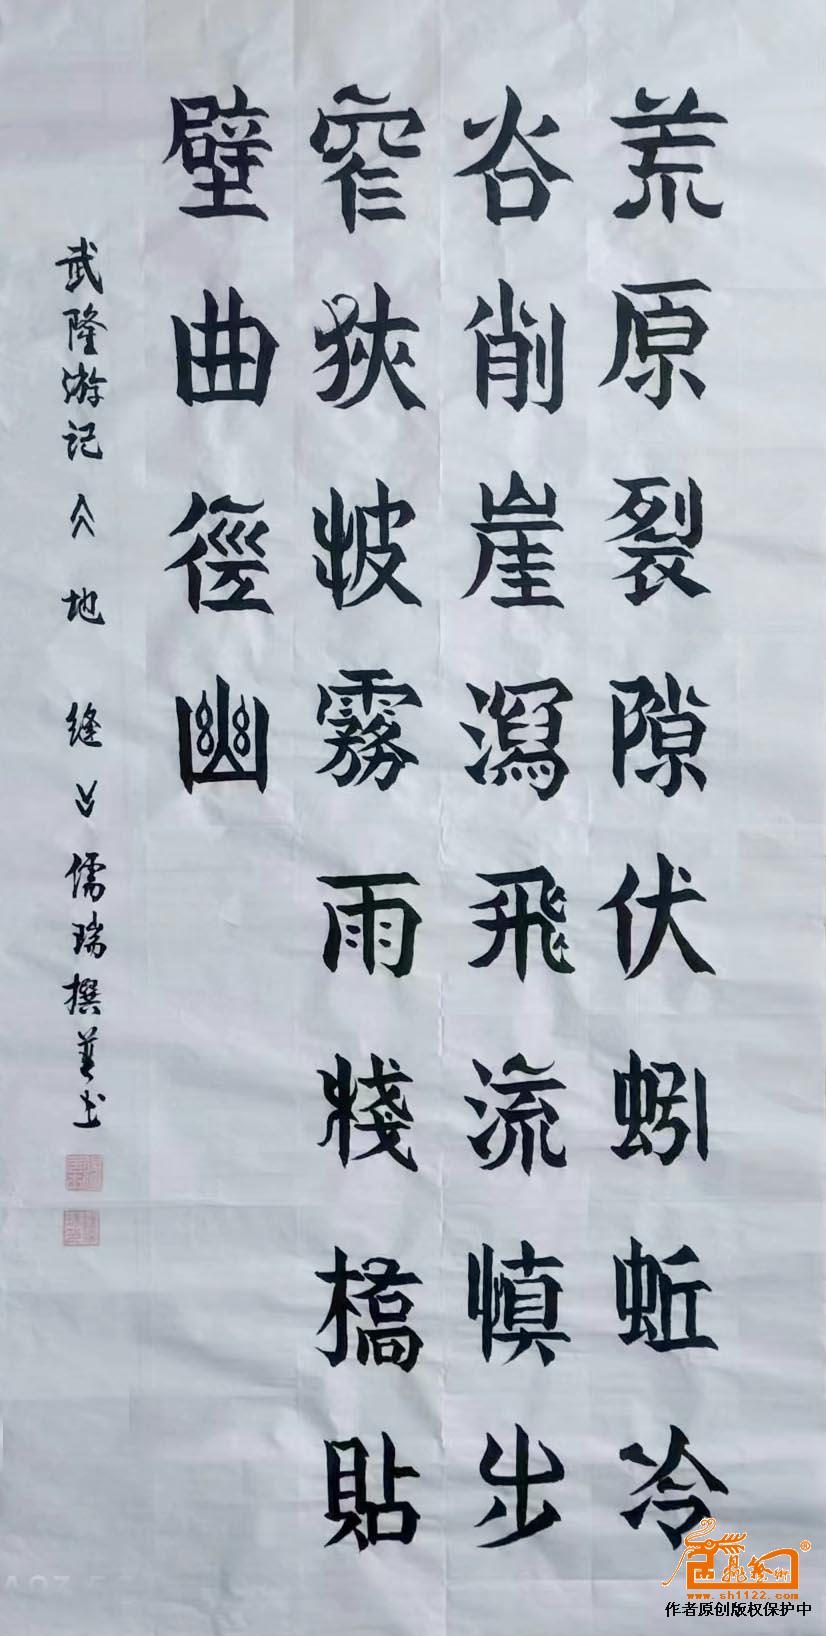 荒原裂隙伏蚓蚯冷
谷削崖瀉飛流慎步
窄狹披霧雨棧橋貼
壁曲徑幽
武隆游記 入地縫 儒瑞撰并书
www.sh1122.com
作者原创版权保护中